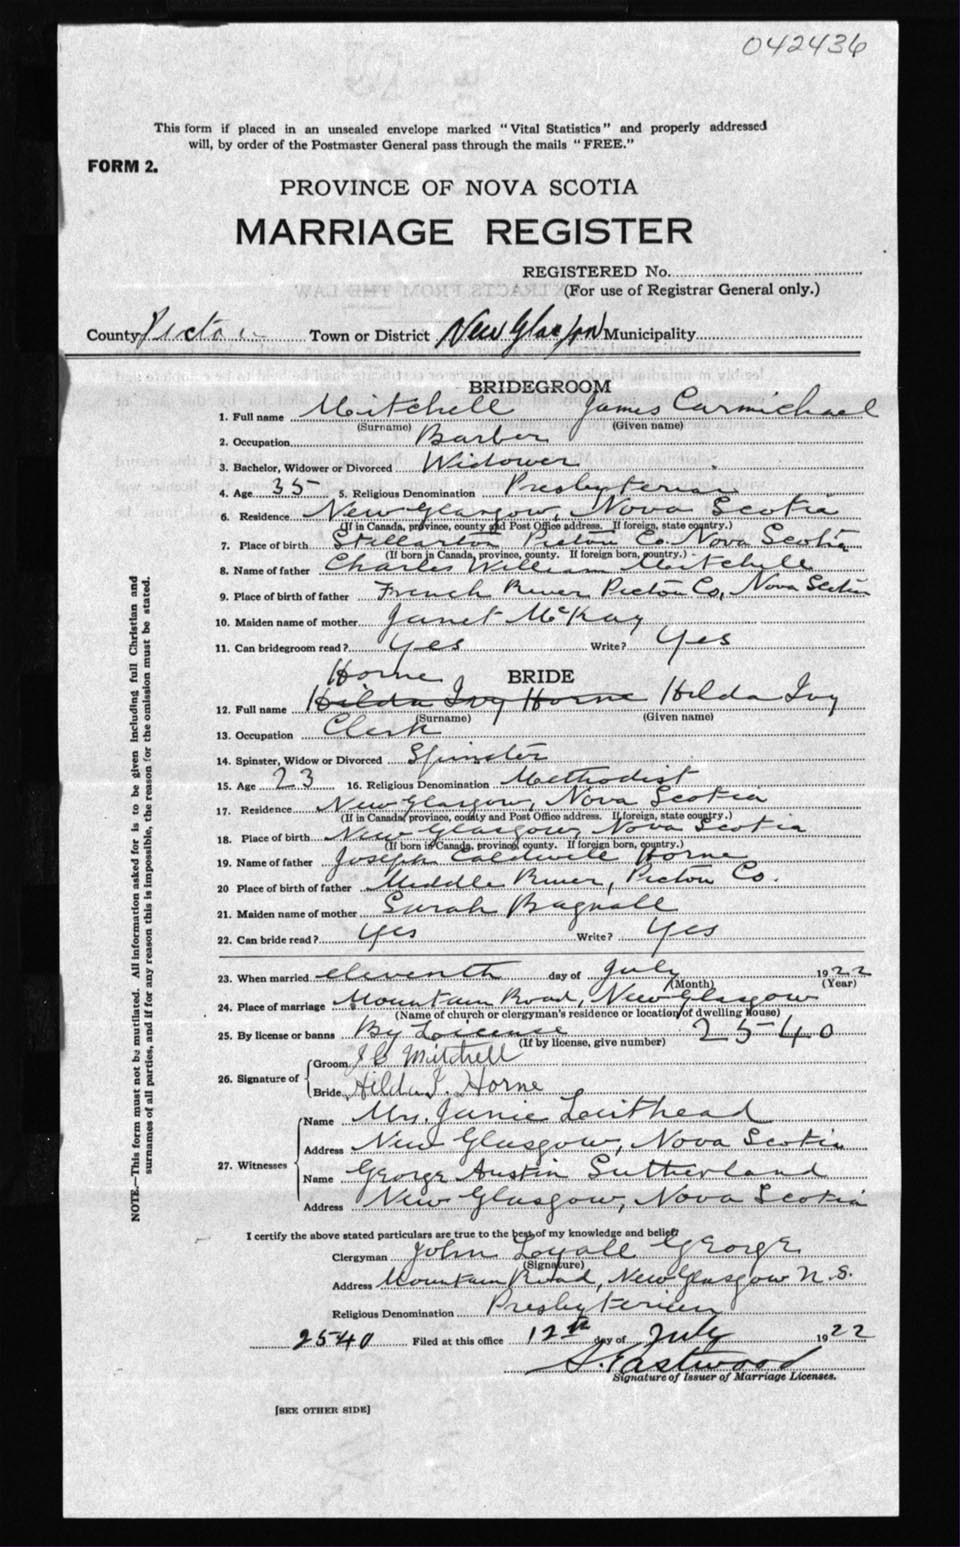 042436
This form if placed in an unsealed envelope marked "Vital Statistics" and properly addressed
will, by order of the Postmaster General pass through the mails "FREE."
FORM 2.
PROVINCE OF NOVA SCOTIA
MARRIAGE REGISTER
REGISTERED No.
(For use of Registrar General only.)
County Pictou Town or District New Glasgow Municipality
BRIDEGROOM
1. Full name Mitchell James Carmichael
(Surname) (Given name)
2. Occupation Barber
3. Bachelor, Widower or Divorced Widower
4. Age 35 5. Religious Denomination Presbyterian
6. Residence New Glasgow, Nova Scotia
(If in Canada, province, county and Post Office address. If foreign, state country.)
7. Place of birth Stellarton Pictou Co. Nova Scotia
(If born in Canada, province, county. If foreign born, country.)
8. Name of father Charles William Mitchell
9. Place of birth of father French River Pictou Co, Nova Scotia
10. Maiden name of mother Janet McKay
11. Can bridegroom read? Yes Write? Yes
BRIDE
Horne
12. Full name Hilda Ivy Horne Hilda Ivy
(Surname) (Given name)
13. Occupation Clerk
14. Spinster, Widow or Divorced Spinster
15. Age 23 16. Religious Denomination Methodist
17. Residence New Glasgow, Nova Scotia
(If in Canada, province, county and Post Office address. If foreign, state country.)
18. Place of birth New Glasgow, Nova Scotia
(If born in Canada, province, county. If foreign born, country.)
19. Name of father Joseph Caldwell Horne
20 Place of birth of father Middle River, Pictou Co.
21. Maiden name of mother Sarah Bagnall
22. Can bride read? Yes Write? Yes
23. When married eleventh day of July 1922
(Month) (Year)
24. Place of marriage Mountain Road, New Glasgow
(Name of church or clergyman's residence or location of dwelling House)
25. By license or banns By License 2540
(If by license, give number)
26. Signature of
Groom J C Mitchell
Bride Hilda I. Horne
27. Witnesses
Name Mrs. Janie Laithead
Address New Glasgow, Nova Scotia
Name George Austin Sutherland
Address New Glasgow, Nova Scotia
I certify the above stated particulars are true to the best of my knowledge and belief:
Clergyman John Lyall George
(Signature)
Address Mountain Road, New Glasgow N.S.
Religious Denomination Presbyterian
2540 Filed at this office 12th day of July 1922
S. Eastwood
Signature of Issuer of Marriage Licenses.
[SEE OTHER SIDE]
NOTE.—This form must not be mutilated. All information asked for is to be given including full Christian and
surnames of all parties, and if for any reason this is impossible, the reason for the omission must be stated.